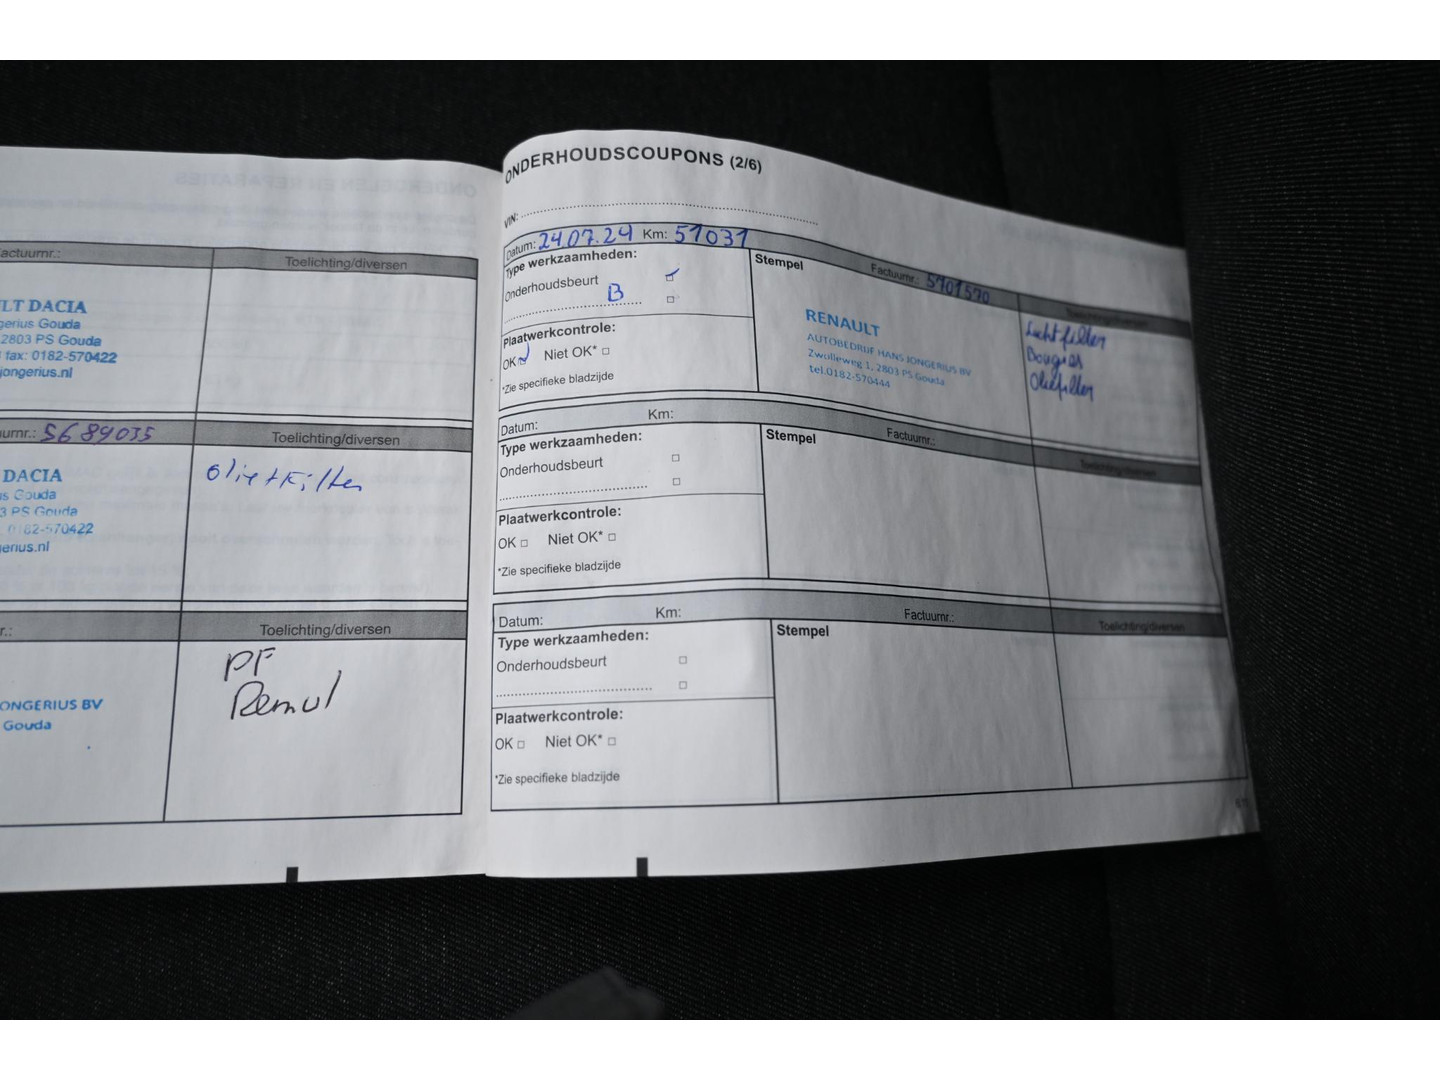 actuurnr.:
Toelichting/diversen
LT DACIA
gerius Gouda
2803 PS Gouda
fax: 0182-570422
jongerius.nl
uurnr.: 5689035
Toelichting/diversen
DACIA
us Gouda
3 PS Gouda
0182-570422
erius.nl
olie+filter
r.:
Toelichting/diversen
PF
Remvl
ONGERIUS BV
Gouda
ONDERHOUDSCOUPONS (2/6)
VIN:
Datum: 24.07.24 Km: 51031
Type werkzaamheden:
Onderhoudsbeurt
B
Plaatwerkcontrole:
OK Niet OK*
*Zie specifieke bladzijde
Stempel
Factuurnr.: 5101570
RENAULT
AUTOBEDRIJF HANS JONGERIUS BV
Zwolleweg 1, 2803 PS Gouda
tel.0182-570444
Toelichting/diversen
Luchtfilter
Bougies
Oliefilter
Datum: Km:
Type werkzaamheden:
Onderhoudsbeurt
Plaatwerkcontrole:
OK Niet OK*
*Zie specifieke bladzijde
Stempel
Factuurnr.:
Toelichting/diversen
Datum: Km:
Type werkzaamheden:
Onderhoudsbeurt
Plaatwerkcontrole:
OK Niet OK*
*Zie specifieke bladzijde
Stempel
Factuurnr.:
Toelichting/diversen